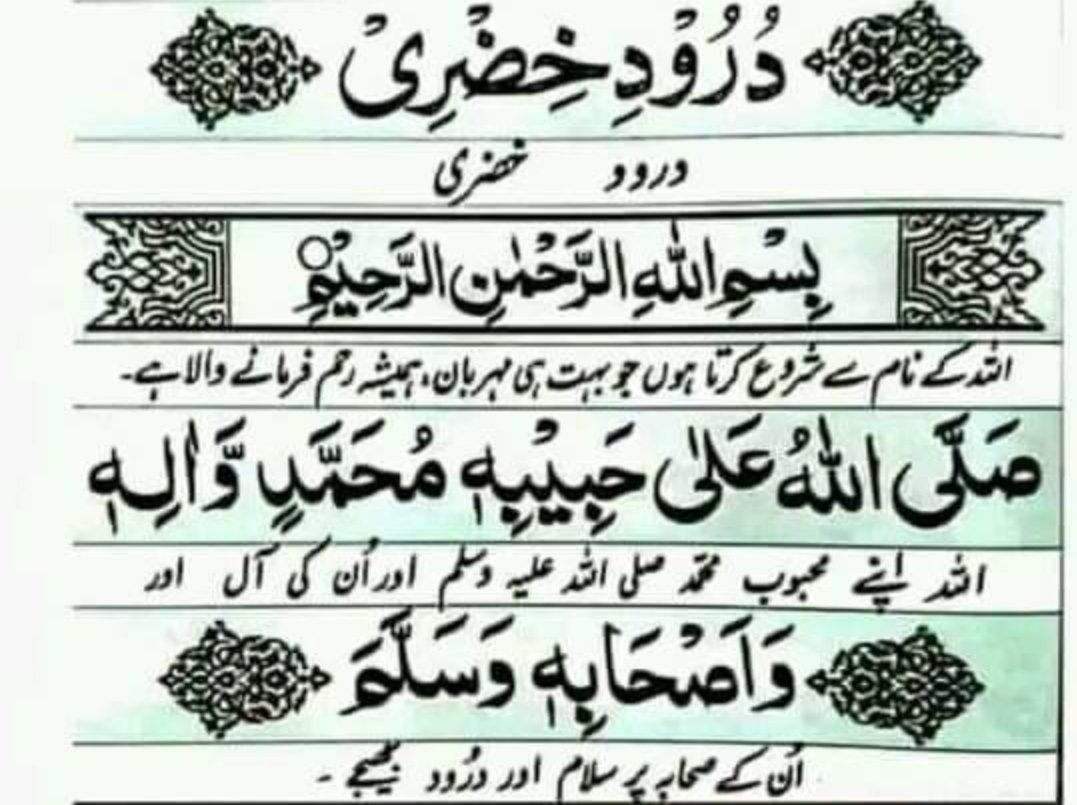 دُرُوْدِ خِضْرِیْ
درود خضری
بِسْمِ اللّٰهِ الرَّحْمٰنِ الرَّحِیْمِ○
اللہ کے نام سے شروع کرتا ہوں جو بہت ہی مہربان، ہمیشہ رحم فرمانے والا ہے۔
صَلَّی اللّٰهُ عَلٰی حَبِیْبِهٖ مُحَمَّدٍ وَّاٰلِهٖ
اللہ اپنے محبوب محمّد صلی اللہ علیہ وسلم اور اُن کی آل اور
وَاَصْحَابِهٖ وَسَلَّمَ
اُن کے صحابہ پر سلام اور درُود بھیجے۔